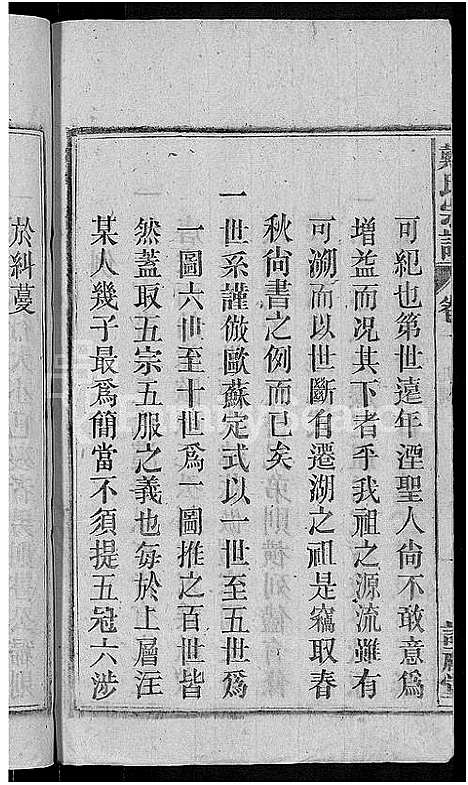 可紀也第世遠年湮聖人尙不敢意爲
增益而况其下者乎我祖之源流雖有
可溯而以世斷自遷湖之祖是竊取春
秋尙書之例而已矣
一世系謹倣歐蘇定式以一世至五世爲
一圖六世至十世爲一圖推之百世皆
然蓋取五宗五服之義也每於上層注
某人幾子最爲簡當不須提五冠六涉
於糾蔓